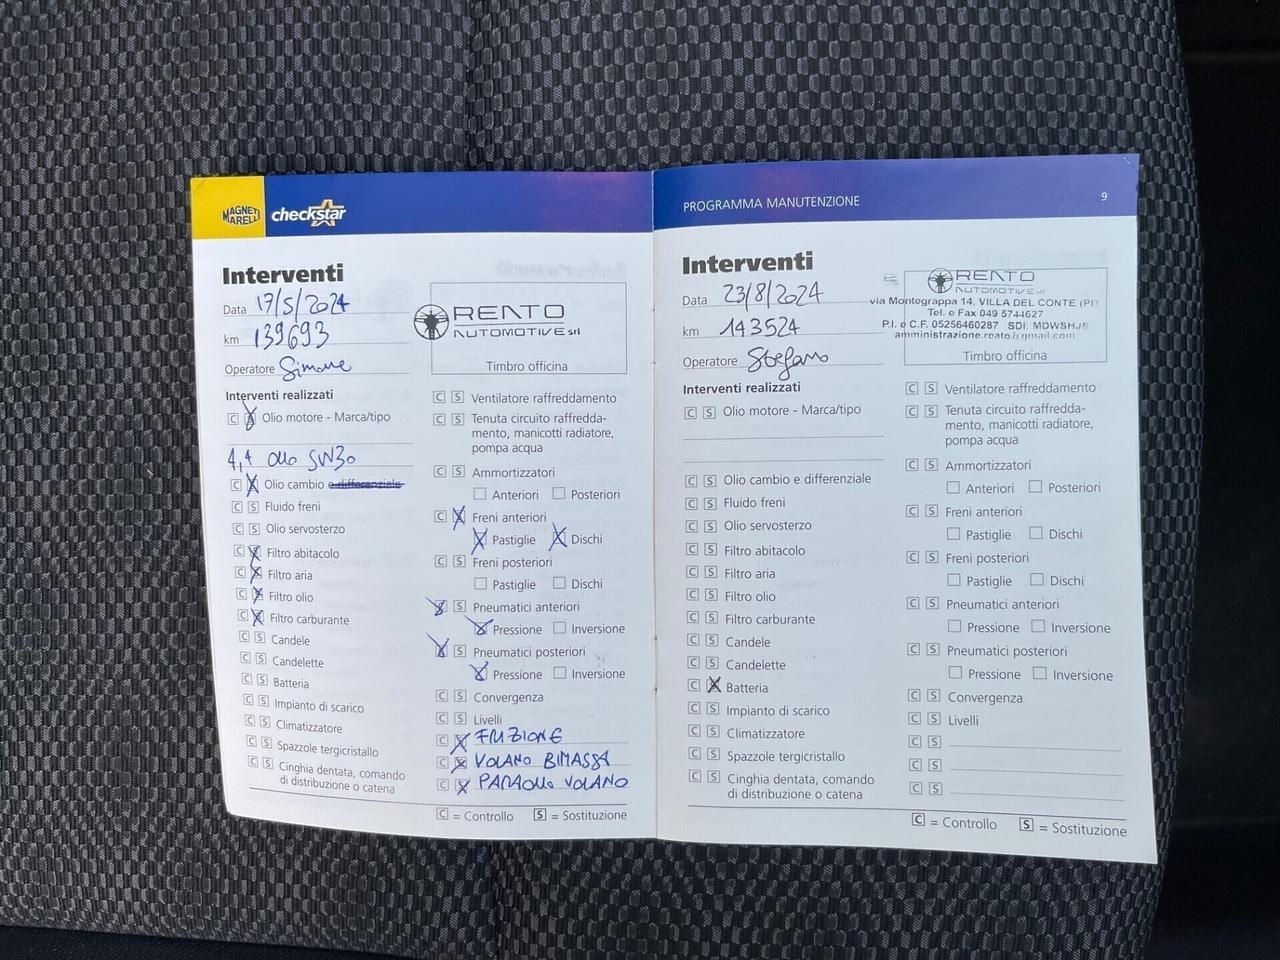 MAGNETI
MARELLI
checkstar
Interventi
Data 17/5/2024
km 139693
Operatore Simone
RENTO
AUTOMOTIVE srl
Timbro officina
Interventi realizzati
C S Olio motore - Marca/tipo
4,4 olio 5W30
C S Olio cambio e differenziale
C S Fluido freni
C S Olio servosterzo
C S Filtro abitacolo
C S Filtro aria
C S Filtro olio
C S Filtro carburante
C S Candele
C S Candelette
C S Batteria
C S Impianto di scarico
C S Climatizzatore
C S Spazzole tergicristallo
C S Cinghia dentata, comando
di distribuzione o catena
C S Ventilatore raffreddamento
C S Tenuta circuito raffredda-
mento, manicotti radiatore,
pompa acqua
C S Ammortizzatori
Anteriori Posteriori
C S Freni anteriori
Pastiglie Dischi
C S Freni posteriori
Pastiglie Dischi
C S Pneumatici anteriori
Pressione Inversione
C S Pneumatici posteriori
Pressione Inversione
C S Convergenza
C S Livelli
C S FRIZIONE
C S VOLANO BIMASSA
C S PARAOLIO VOLANO
C = Controllo S = Sostituzione
PROGRAMMA MANUTENZIONE 9
Interventi
Data 23/8/2024
km 143524
Operatore Stefano
RENTO
AUTOMOTIVE srl
via Montegrappa 14, VILLA DEL CONTE (PD)
Tel. e Fax 049 5744627
P.I. e C.F. 05256460287 SDI: MDWSHJS
amministrazione.reato@gmail.com
Timbro officina
Interventi realizzati
C S Olio motore - Marca/tipo
C S Olio cambio e differenziale
C S Fluido freni
C S Olio servosterzo
C S Filtro abitacolo
C S Filtro aria
C S Filtro olio
C S Filtro carburante
C S Candele
C S Candelette
C S Batteria
C S Impianto di scarico
C S Climatizzatore
C S Spazzole tergicristallo
C S Cinghia dentata, comando
di distribuzione o catena
C S Ventilatore raffreddamento
C S Tenuta circuito raffredda-
mento, manicotti radiatore,
pompa acqua
C S Ammortizzatori
Anteriori Posteriori
C S Freni anteriori
Pastiglie Dischi
C S Freni posteriori
Pastiglie Dischi
C S Pneumatici anteriori
Pressione Inversione
C S Pneumatici posteriori
Pressione Inversione
C S Convergenza
C S Livelli
C S
C S
C S
C = Controllo S = Sostituzione